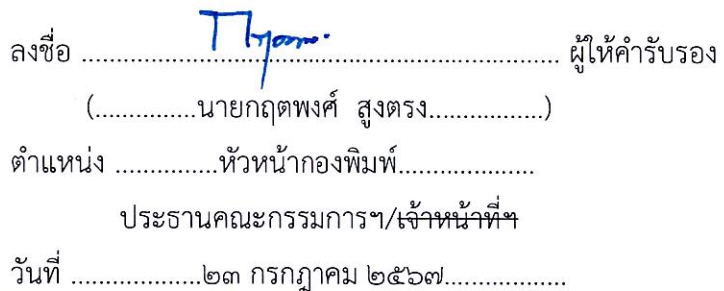 ลงชื่อ ................................................................ ผู้ให้คำรับรอง
(...............นายกฤตพงศ์ สูงตรง.................)
ตำแหน่ง ..............หัวหน้ากองพิมพ์...................
ประธานคณะกรรมการฯ/เจ้าหน้าที่ฯ
วันที่ ..................๒๓ กรกฎาคม ๒๕๖๗.................